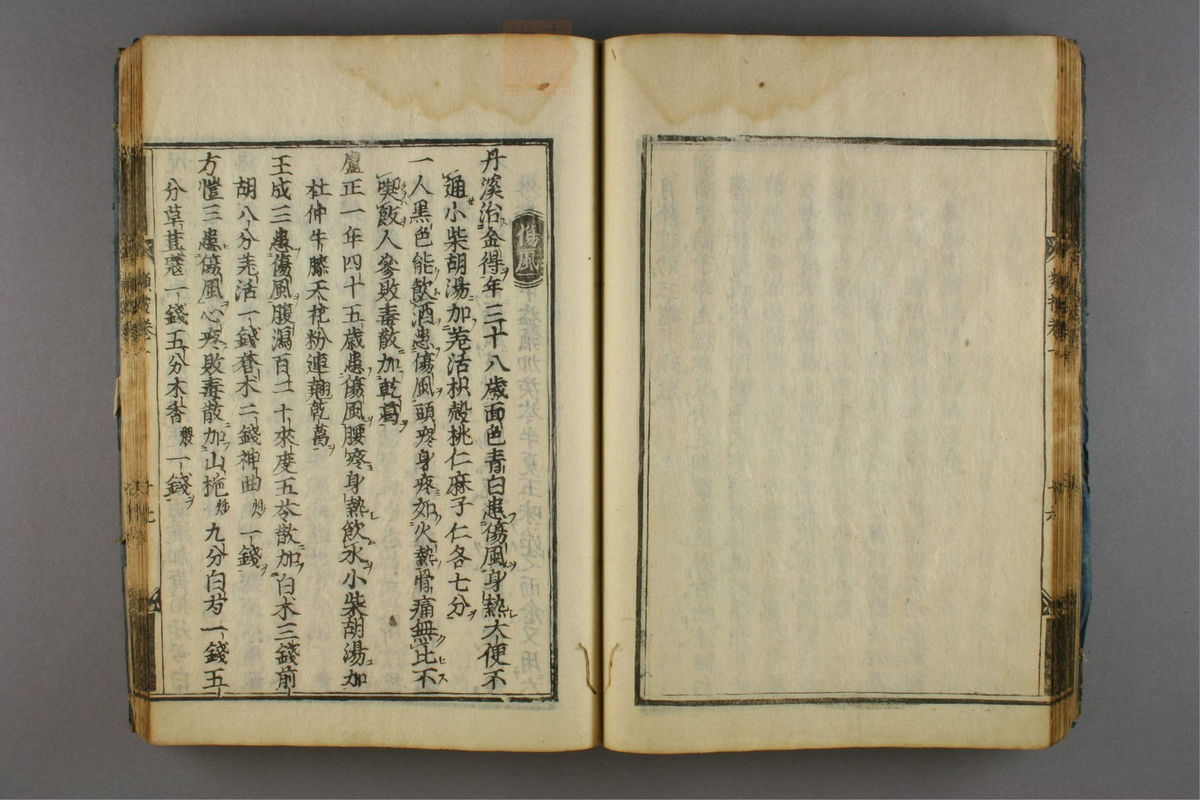 傷風
丹溪治金得年三十八歳面色青白患傷風身熱大便不
通小柴胡湯加羌活枳殻桃仁麻子仁各七分
一人黒色能飲酒患傷風頭疼身疼如火熱骨痛無比不
喫飯人參敗毒散加乾葛
盧正一年四十五歳患傷風腰疼身熱飲水小柴胡湯加
杜仲牛膝天花粉連翹乾葛
王成三患傷風腹瀉百二十來度五苓散加白术三錢前
胡八分羌活一錢蒼术二錢神曲炒一錢
方愷三患傷風心疼敗毒散加山梔炒九分白芍一錢五
分草荳蔲一錢五分木香一錢